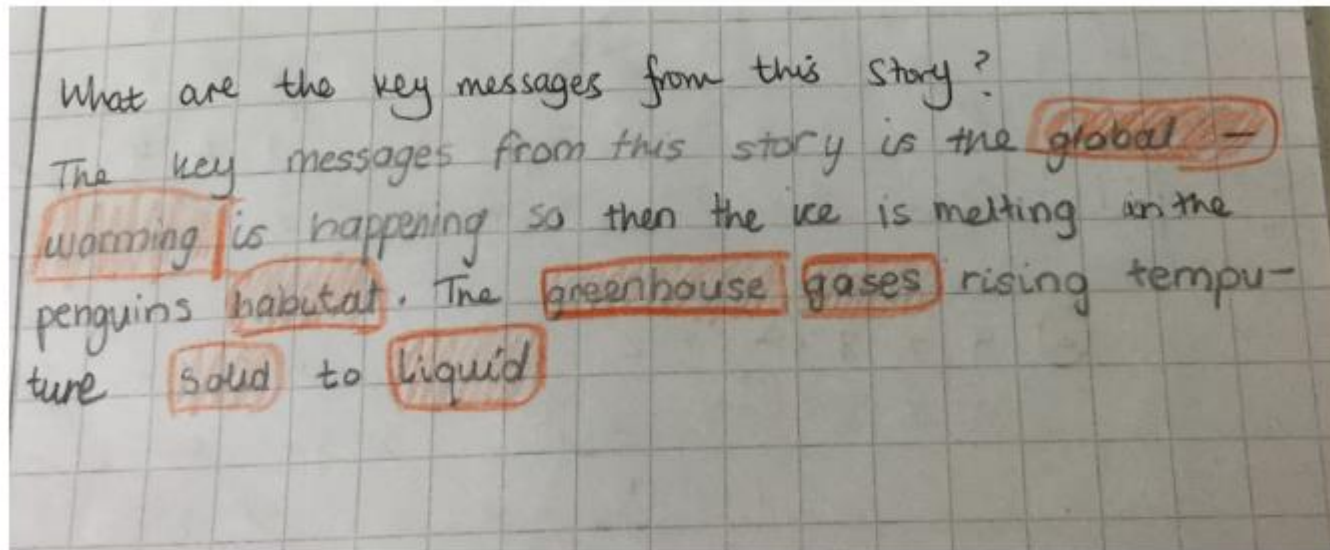 What are the key messages from this story?
The key messages from this story is the global -
warming is happening so then the ice is melting in the
penguins habitat. The greenhouse gases rising tempu-
ture solid to liquid